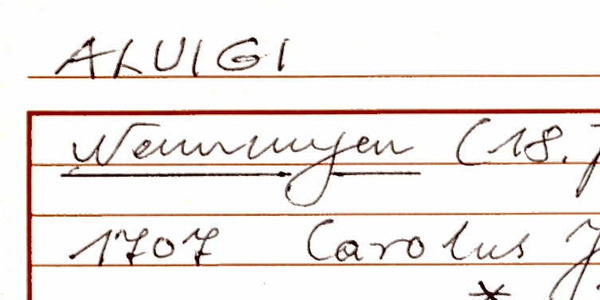 ALUIGI
Nenningen (18.
1707 Carolus J
*